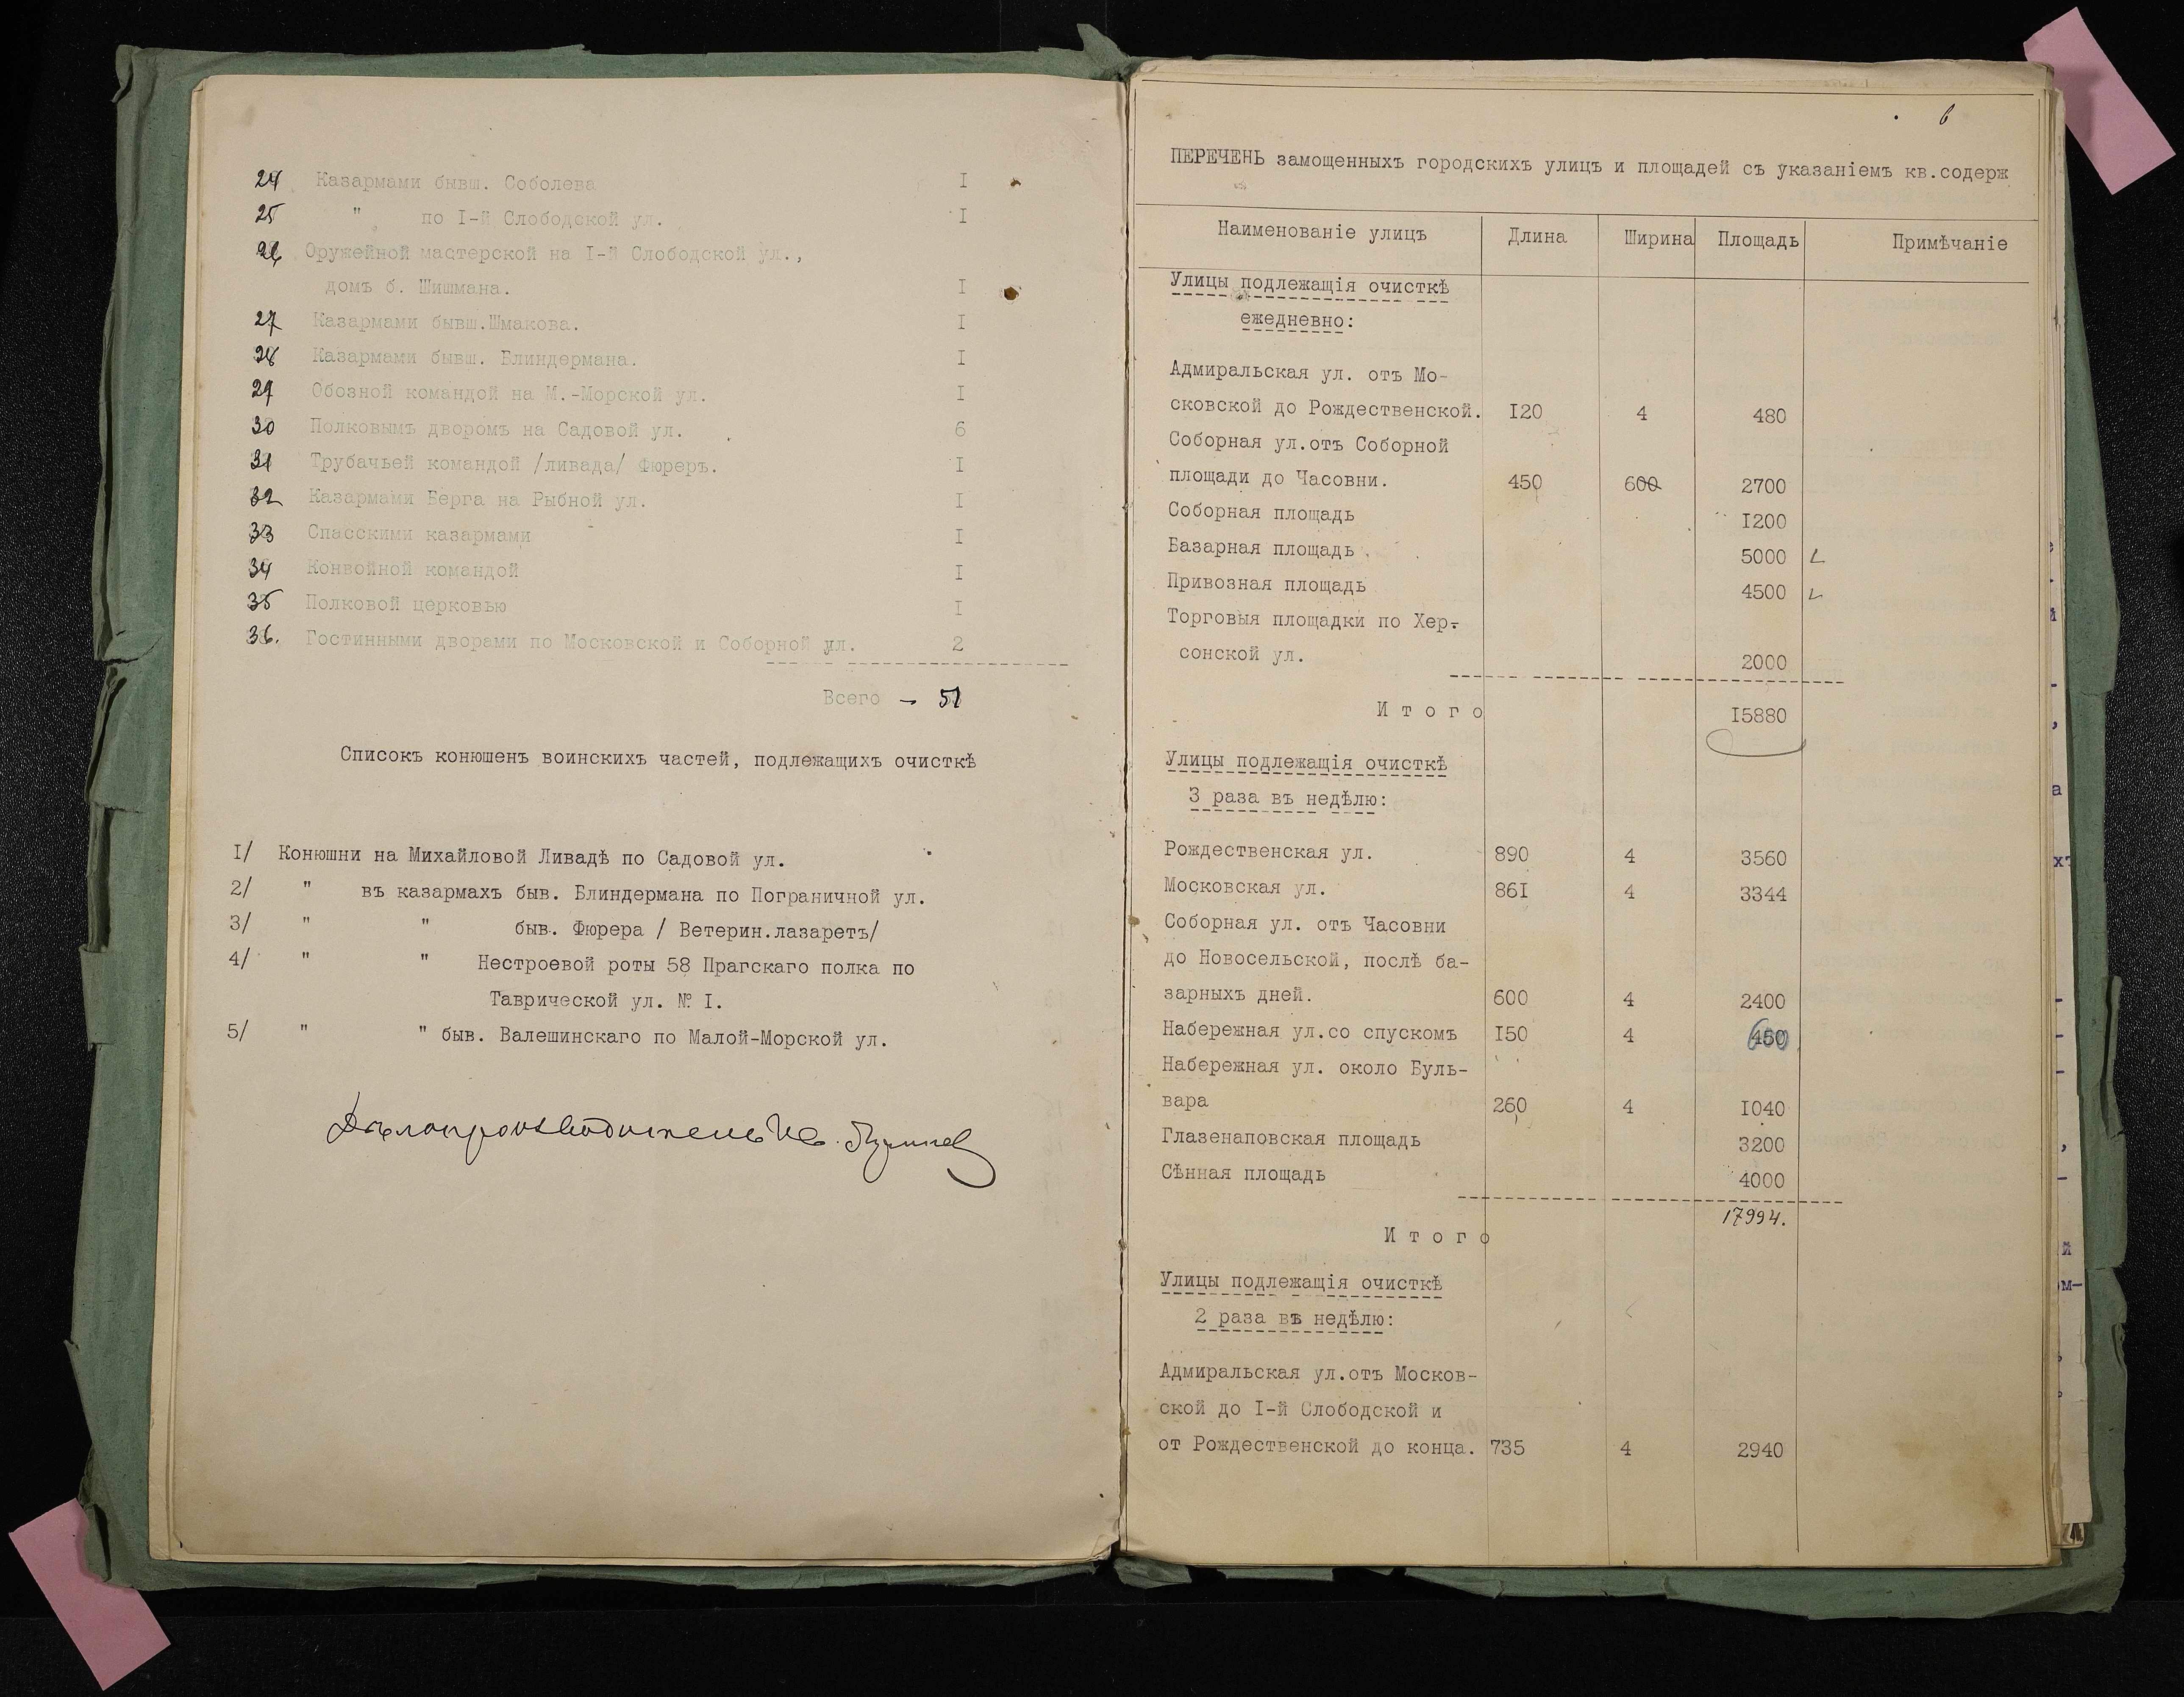 24 Казармами бывш. Соболева I
25 " по I-й Слободской ул. I
26 Оружейной мастерской на I-й Слободской ул.,
домъ б. Шишмана. I
27 Казармами бывш.Шмакова. I
28 Казармами бывш. Блиндермана. I
29 Обозной командой на М.-Морской ул. I
30 Полковымъ дворомъ на Садовой ул. 6
31 Трубачьей командой /ливада/ Фюреръ. I
32 Казармами Берга на Рыбной ул. I
33 Спасскими казармами I
34 Конвойной командой I
35 Полковой церковью I
36. Гостинными дворами по Московской и Соборной ул. 2
Всего - 51
Списокъ конюшенъ воинскихъ частей, подлежащихъ очисткѣ
I/ Конюшни на Михайловой Ливадѣ по Садовой ул.
2/ " въ казармахъ быв. Блиндермана по Пограничной ул.
3/ " " быв. Фюрера / Ветерин.лазаретъ/
4/ " " Нестроевой роты 58 Прагскаго полка по
Таврической ул. № I.
5/ " " быв. Валешинскаго по Малой-Морской ул.
Дѣлопроизводитель
6
ПЕРЕЧЕНЬ замощенныхъ городскихъ улицъ и площадей съ указаніемъ кв.содерж
Наименованіе улицъ Длина Ширина Площадь Примѣчаніе
Улицы подлежащія очисткѣ
ежедневно:
Адмиральская ул. отъ Мо-
сковской до Рождественской. I20 4 480
Соборная ул.отъ Соборной
площади до Часовни. 450 600 2700
Соборная площадь I200
Базарная площадь 5000
Привозная площадь 4500
Торговыя площадки по Хер-
сонской ул. 2000
Итого I5880
Улицы подлежащія очисткѣ
3 раза въ недѣлю:
Рождественская ул. 890 4 3560
Московская ул. 86I 4 3344
Соборная ул. отъ Часовни
до Новосельской, послѣ ба-
зарныхъ дней. 600 4 2400
Набережная ул.со спускомъ I50 4 450
Набережная ул. около Буль-
вара 260 4 I040
Глазенаповская площадь 3200
Сѣнная площадь 4000
17994.
Итого
Улицы подлежащія очисткѣ
2 раза въ недѣлю:
Адмиральская ул.отъ Москов-
ской до I-й Слободской и
от Рождественской до конца. 735 4 2940